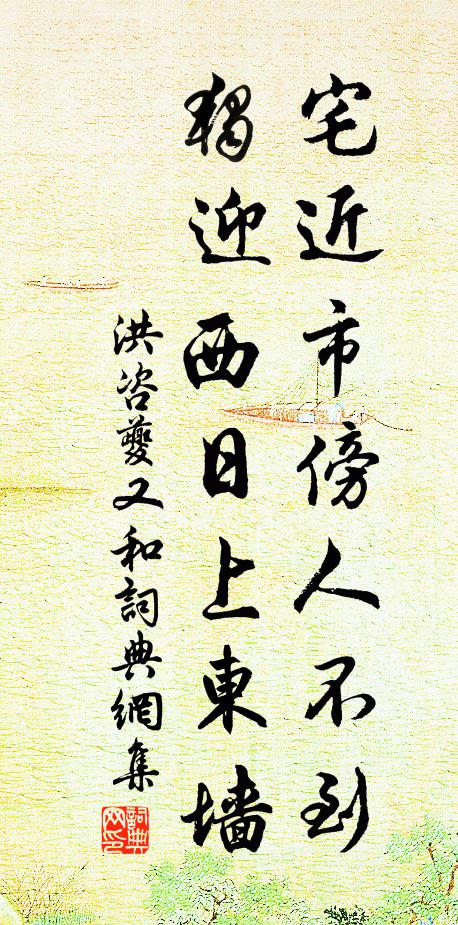 宅近市傍人不到
獨迎西日上東墻
洪咨夔又和詞典網集
詞典網印